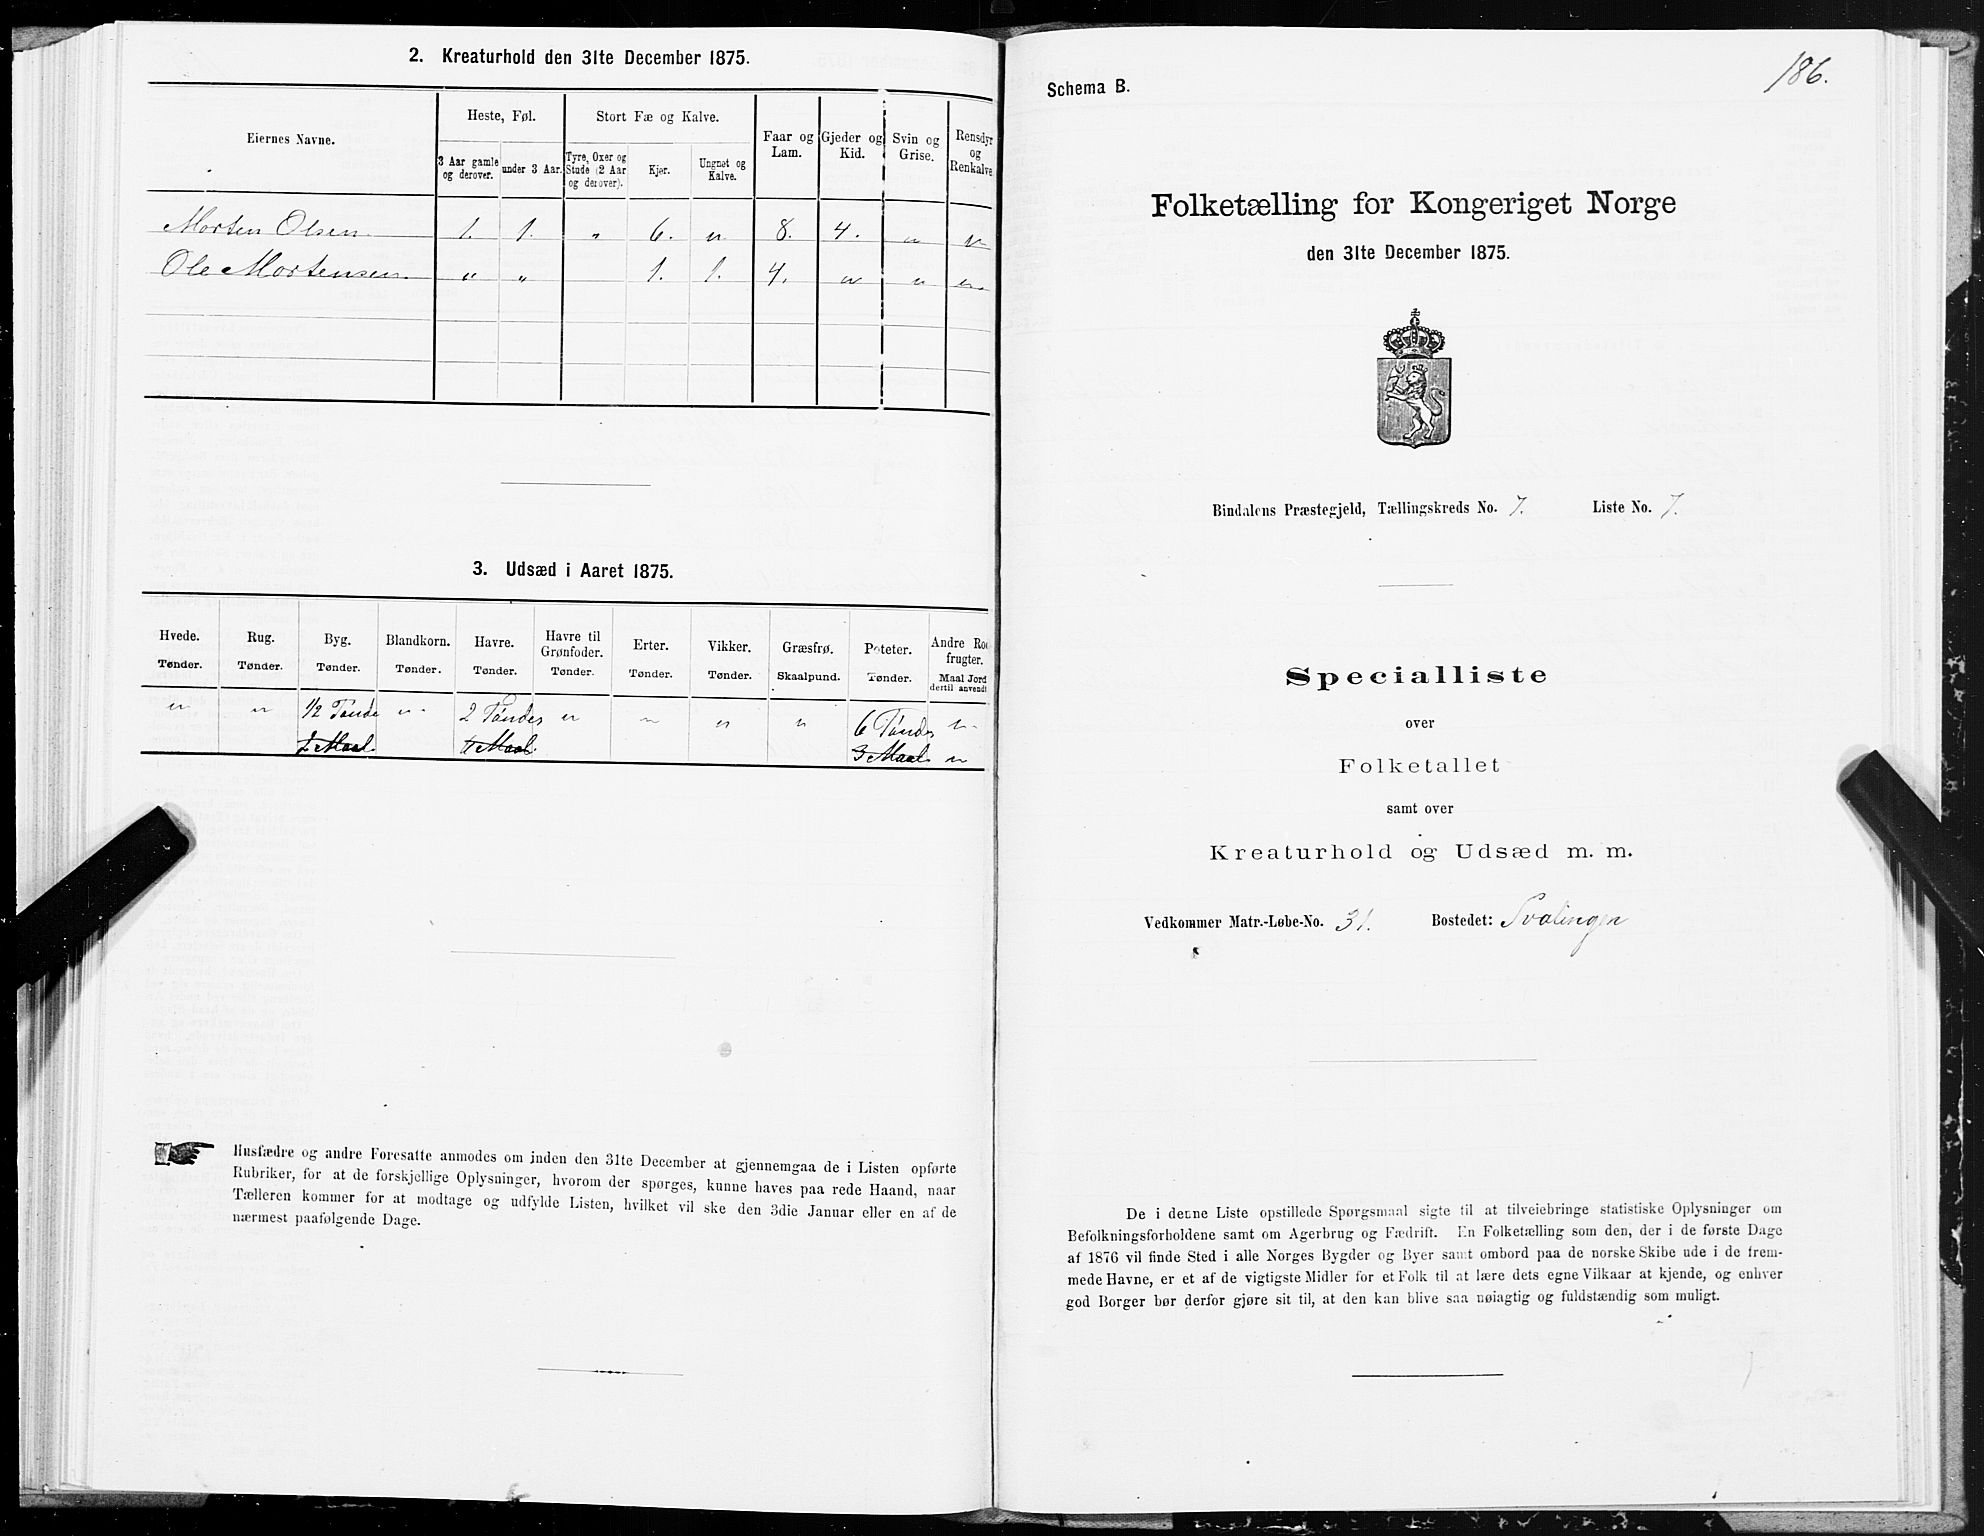 2. Kreaturhold den 31te December 1875.
Eiernes Navne.
Heste, Føl.
Stort Fæ og Kalve.
Faar og Lam.
Gjeder og Kid.
Svin og Grise.
Rensdyr og Renkalve
3 Aar gamle og derover.
under 3 Aar.
Tyre, Oxer og Stude (2 Aar og derover).
Kjør.
Ungnøt og Kalve.
Morten Olsen 1. 1. " 6. " 8. 4. " "
Ole Mortensen " " 1. 1. 4. " " "
3. Udsæd i Aaret 1875.
Hvede. Rug. Byg. Blandkorn. Havre. Havre til Grønfoder. Erter. Vikker. Græsfrø. Poteter. Andre Rodfrugter.
Tønder. Tønder. Tønder. Tønder. Tønder. Tønder. Tønder. Tønder. Skaalpund. Tønder. Maal Jord dertil anvendt
" " 1/2 Tønde " 2 Tønder " " " " 6 Tønder "
Maal. 4 Maal. 3 Maal. "
Husfædre og andre Foresatte anmodes om inden den 31te December at gjennemgaa de i Listen opførte
Rubriker, for at de forskjellige Oplysninger, hvorom der spørges, kunne haves paa rede Haand, naar
Tælleren kommer for at modtage og udfylde Listen, hvilket vil ske den 3die Januar eller en af de
nærmest paafølgende Dage.
186.
Schema B.
Folketælling for Kongeriget Norge
den 31te December 1875.
Bindalens Præstegjeld, Tællingskreds No. 7. Liste No. 7.
Specialliste
over
Folketallet
samt over
Kreaturhold og Udsæd m. m.
Vedkommer Matr.-Løbe-No. 31. Bostedet: Svalingen
De i denne Liste opstillede Spørgsmaal sigte til at tilveiebringe statistiske Oplysninger om
Befolkningsforholdene samt om Agerbrug og Fædrift. En Folketælling som den, der i de første Dage
af 1876 vil finde Sted i alle Norges Bygder og Byer samt ombord paa de norske Skibe ude i de frem-
mede Havne, er et af de vigtigste Midler for et Folk til at lære dets egne Vilkaar at kjende, og enhver
god Borger bør derfor gjøre sit til, at den kan blive saa nøiagtig og fuldstændig som muligt.